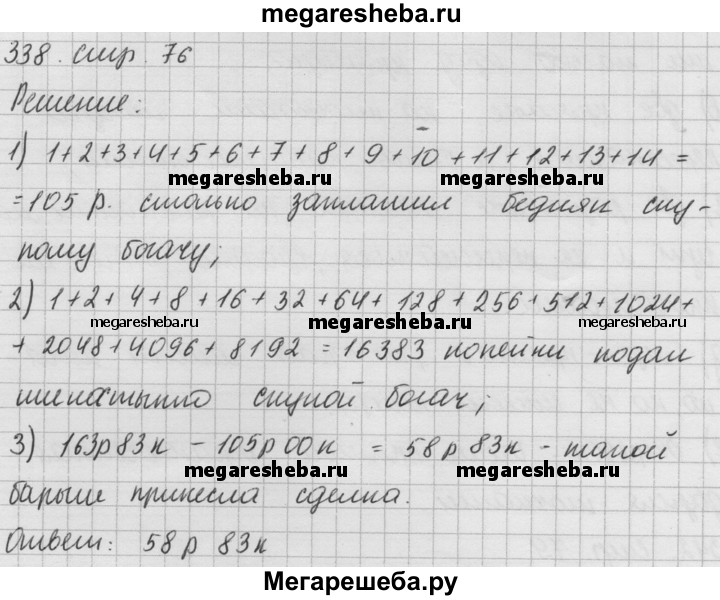 megaresheba.ru
338. стр. 76
Решение:
1) 1+2+3+4+5+6+7+8+9+10+11+12+13+14=
megaresheba.ru megaresheba.ru
=105 р. столько заплатил бедняк ску-
пому богачу;
2) 1+2+4+8+16+32+64+128+256+512+1024+
megaresheba.ru megaresheba.ru
+2048+4096+8192=16383 копейки подал
скупой богач;
3) 163р83к - 105р00к = 58р 83к - такой
megaresheba.ru megaresheba.ru
барыш принесла сделка.
Ответ: 58 р 83к
Мегарешеба.ру